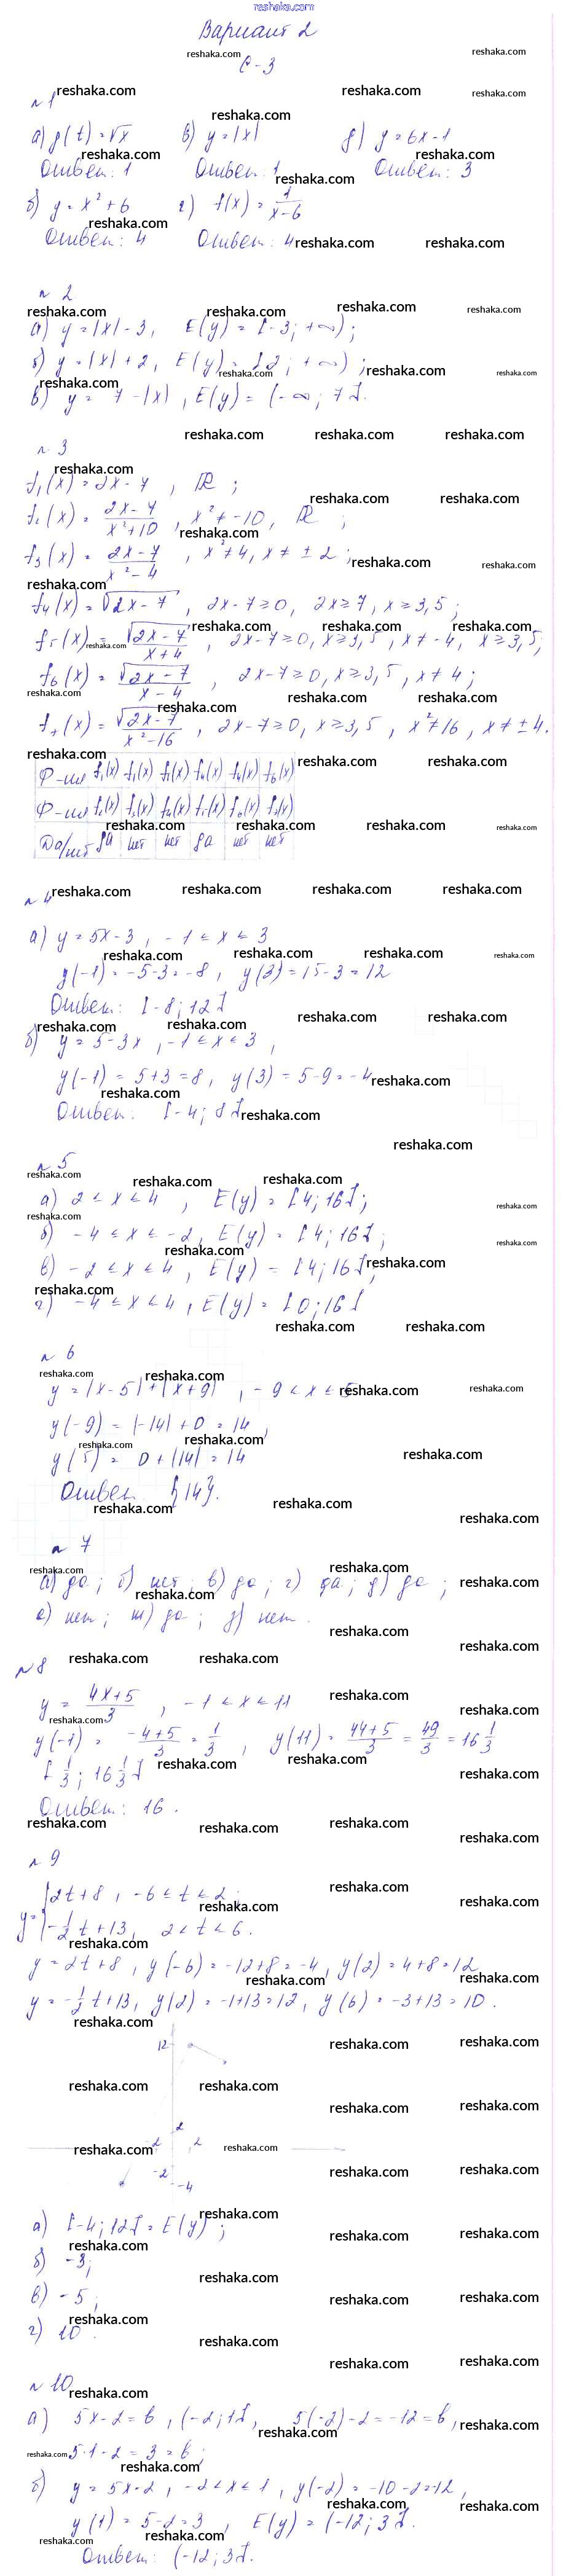 reshaka.com
Вариант 2
С-3
№ 1
а) g(t) = √x в) y = |x| д) y = 6x - 1
Ответ: 1 Ответ: 1 Ответ: 3
б) y = x² + 6 г) f(x) = 1/(x-6)
Ответ: 4 Ответ: 4
№ 2
а) y = |x| - 3, E(y) = [-3; +∞);
б) y = |x| + 2, E(y) = [2; +∞);
в) y = 7 - |x|, E(y) = (-∞; 7].
№ 3
f₁(x) = 2x - 7, ℝ;
f₂(x) = (2x-7)/(x²+10), x² ≠ -10, ℝ;
f₃(x) = (2x-7)/(x²-4), x² ≠ 4, x ≠ ±2;
f₄(x) = √(2x-7), 2x-7 ≥ 0, 2x ≥ 7, x ≥ 3,5;
f₅(x) = √(2x-7)/(x+4), 2x-7 ≥ 0, x ≥ 3,5, x ≠ -4, x ≥ 3,5;
f₆(x) = √(2x-7)/(x-4), 2x-7 ≥ 0, x ≥ 3,5, x ≠ 4;
f₇(x) = √(2x-7)/(x²-16), 2x-7 ≥ 0, x ≥ 3,5, x² ≠ 16, x ≠ ±4.
Ф-ия f₁(x) f₁(x) f₁(x) f₄(x) f₄(x) f₆(x)
Ф-ия f₂(x) f₃(x) f₄(x) f₅(x) f₆(x) f₇(x)
Да/нет да нет нет да нет нет
№ 4
а) y = 5x - 3, -1 ≤ x ≤ 3
y(-1) = -5-3 = -8, y(3) = 15-3 = 12
Ответ: [-8; 12]
б) y = 5 - 3x, -1 ≤ x ≤ 3,
y(-1) = 5+3 = 8, y(3) = 5-9 = -4
Ответ: [-4; 8]
№ 5
а) 2 ≤ x ≤ 4, E(y) = [4; 16];
б) -4 ≤ x ≤ -2, E(y) = [4; 16];
в) -2 ≤ x ≤ 4, E(y) = [4; 16];
г) -4 ≤ x ≤ 4, E(y) = [0; 16]
№ 6
y = |x-5| + |x+9|, -9 ≤ x ≤ 5
y(-9) = |-14| + 0 = 14,
y(5) = 0 + |14| = 14
Ответ {14}.
№ 7
а) да; б) нет; в) да; г) да; д) да;
е) нет; ж) да; з) нет.
№ 8
y = (4x+5)/3, -1 ≤ x ≤ 11
y(-1) = (-4+5)/3 = 1/3, y(11) = (44+5)/3 = 49/3 = 16 1/3
[1/3; 16 1/3]
Ответ: 16.
№ 9
y = { 2t+8, -6 ≤ t ≤ 2;
-1/2 t + 13, 2 < t ≤ 6.
y = 2t+8, y(-6) = -12+8 = -4, y(2) = 4+8 = 12
y = -1/2 t + 13, y(2) = -1+13 = 12, y(6) = -3+13 = 10.
12
2
-2 2
-2
-4
а) [-4; 12] = E(y);
б) -3;
в) -5;
г) 10.
№ 10
а) 5x-2 = b, (-2; 1], 5(-2)-2 = -12 = b,
5·1-2 = 3 = b;
б) y = 5x-2, -2 < x ≤ 1, y(-2) = -10-2 = -12,
y(1) = 5-2 = 3, E(y) = (-12; 3].
Ответ: (-12; 3].